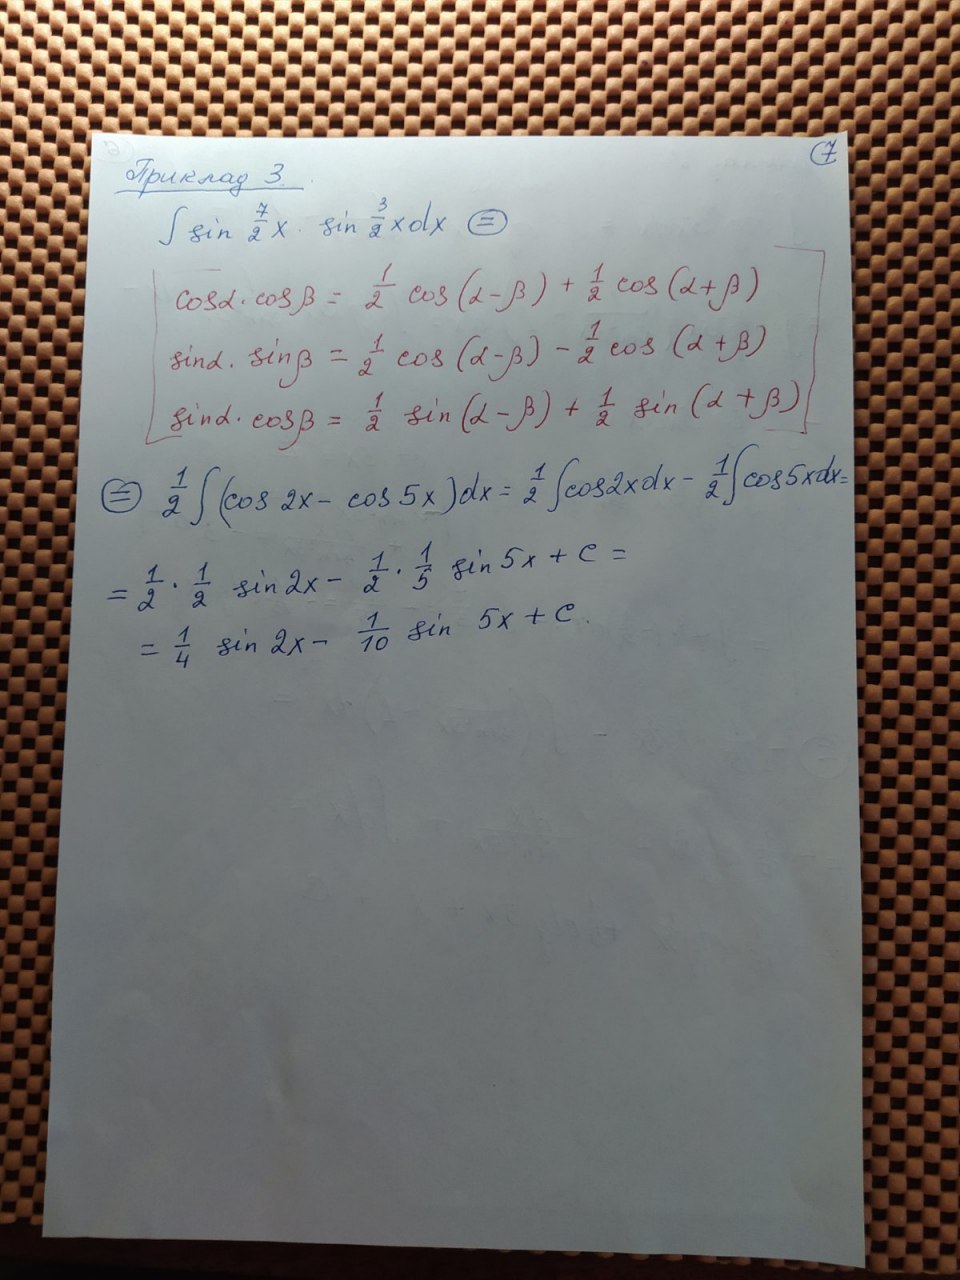 7
Приклад 3.
∫ sin 7/2 x · sin 3/2 x dx ⊜
cosα · cosβ = 1/2 cos (α-β) + 1/2 cos (α+β)
sinα · sinβ = 1/2 cos (α-β) - 1/2 cos (α+β)
sinα · cosβ = 1/2 sin (α-β) + 1/2 sin (α+β)
⊜ 1/2 ∫ (cos 2x - cos 5x) dx = 1/2 ∫ cos 2x dx - 1/2 ∫ cos 5x dx =
= 1/2 · 1/2 sin 2x - 1/2 · 1/5 sin 5x + C =
= 1/4 sin 2x - 1/10 sin 5x + C.